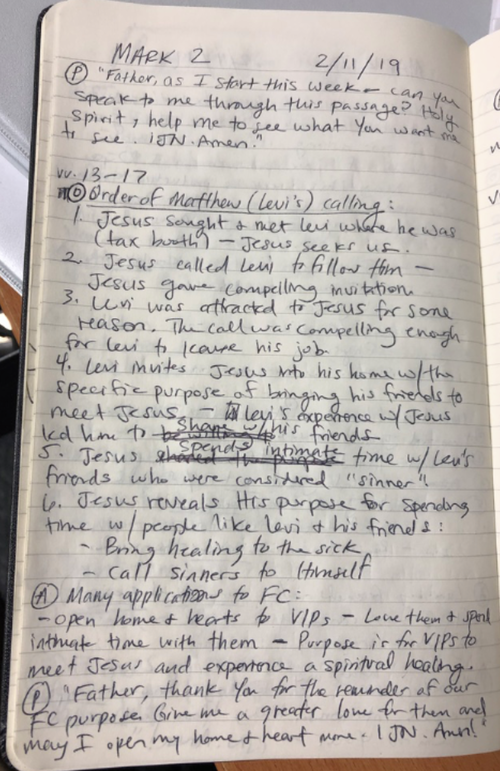 MARK 2 2/11/19
Ⓟ "Father, as I start this week – can you
speak to me through this passage? Holy
Spirit, help me to see what You want me
to see. IJN. Amen."
vv. 13-17
Ⓞ Order of Matthew (Levi's) calling:
1. Jesus sought & met Levi where he was
(tax booth) – Jesus seeks us.
2. Jesus called Levi to follow Him –
Jesus gave compelling invitation.
3. Levi was attracted to Jesus for some
reason. The call was compelling enough
for Levi to leave his job.
4. Levi invites Jesus into his home w/ the
specific purpose of bringing his friends to
meet Jesus. – Levi's experience w/ Jesus
led him to share w/ his friends
5. Jesus spends intimate time w/ Levi's
friends who were considered "sinner".
6. Jesus reveals His purpose for spending
time w/ people like Levi & his friends:
- Bring healing to the sick
- Call sinners to Himself
Ⓐ Many applications to FC:
- open home & hearts to VIPs – Love them & spend
intimate time with them – Purpose is for VIPs to
meet Jesus and experience a spiritual healing.
Ⓟ "Father, thank You for the reminder of our
FC purpose. Give me a greater love for them and
may I open my home & heart more. IJN. Amen!"